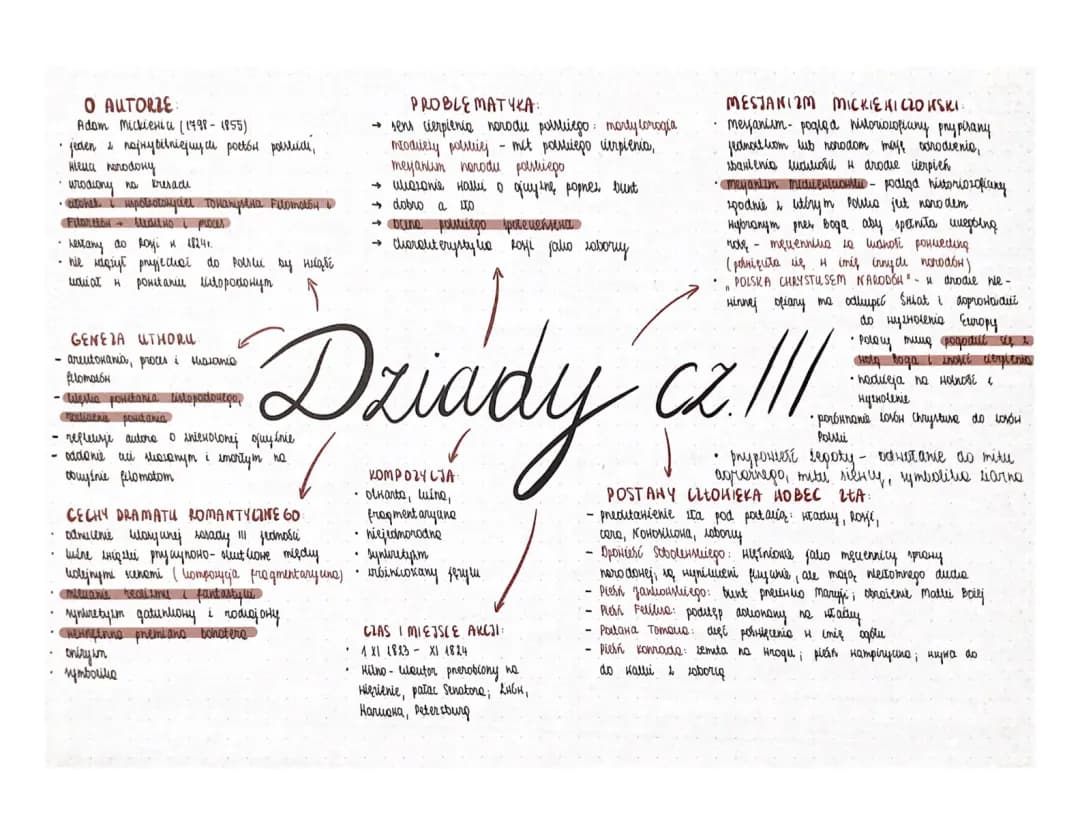 O AUTORZE:
Adam Mickiewicz (1798 - 1855)
· jeden z najwybitniejszych poetów polskich,
wieszcz narodowy
· urodzony na kresach
· członek i współzałożyciel Towarzystwa Filomatów i
Filaretów → śledztwo i proces
· zesłany do Rosji w 1824r.
· nie zdążył przyjechać do Polski by wziąść
udział w powstaniu listopadowym
PROBLEMATYKA:
→ sens cierpienia narodu polskiego: martylorogia
młodzieży polskiej - mit polskiego cierpienia,
mesjanizm narodu polskiego
→ ukazanie walki o ojczyznę poprzez bunt
→ dobro a zło
→ ocena polskiego społeczeństwa
→ charakterystyka Rosji jako zaborcy
MESJANIZM MICKIEWICZOWSKI:
· mesjanizm - pogląd historiozoficzny przypisany
jednostkom lub narodom misję odrodzenia,
zbawienia ludzkości w drodze cierpień
· mesjanizm mickiewiczowski - pogląd historiozoficzny
zgodnie z którym Polska jest narodem
wybranym przez Boga aby spełniła szczególną
rolę - męczennika za ludność powszechną
(poświęciła się w imię innych narodów)
· „POLSKA CHRYSTUSEM NARODÓW" - w drodze nie-
winnej ofiary ma odkupić Świat i doprowadzić
do wyzwolenia Europy
· Polacy muszą pogodzić się z
wolą Boga i znosić cierpienia
· nadzieja na wolność i
wyzwolenie
· porównanie losów Chrystusa do losów
Polski
· przypowieść Żegoty - odwołanie do mitu
agrarnego, mitu ziemi, symbolika ziarna
GENEZA UTWORU:
- aresztowania, proces i skazanie
filomatów
- klęska powstania listopadowego,
rozliczenie powstania
- refleksje autora o zniewolonej ojczyźnie
- oddanie czci skazanym i zmarłym na
obczyźnie filomatom
Dziady cz. III
CECHY DRAMATU ROMANTYCZNEGO:
· odrzucenie klasycznej zasady III jedności
· luźne związki przyczynowo-skutkowe między
kolejnymi scenami (kompozycja fragmentaryczna)
· mieszanie realizmu i fantastyki
· synkretyzm gatunkowy i rodzajowy
· wewnętrzna przemiana bohatera
· oniryzm
· symbolika
KOMPOZYCJA:
· otwarta, luźna,
fragmentaryczna
· niejednorodna
· synkretyzm
· zróżnicowany język
CZAS I MIEJSCE AKCJI:
· 1 XI 1823 - XI 1824
· Wilno - klasztor przerobiony na
więzienie, pałac Senatora; Lwów,
Warszawa, Petersburg
POSTAWY CZŁOWIEKA WOBEC ZŁA:
- przedstawienie zła pod postacią: władzy, Rosji,
cara, Nowosilcowa, zaborcy
- Opowieść Sobolewskiego: więźniowie jako męczennicy sprawy
narodowej; są wyniszczeni fizycznie, ale mają niezłomnego ducha
- Pieśń Jankowskiego: bunt przeciwko Maryji; obrażenie Matki Bożej
- Pieśń Feliksa: podstęp dokonany na władzy
- Postawa Tomasza: chęć poświęcenia w imię ogółu
- Pieśń Konrada: zemsta na wrogu; pieśń wampiryczna; wzywa do
do walki z zaborcą